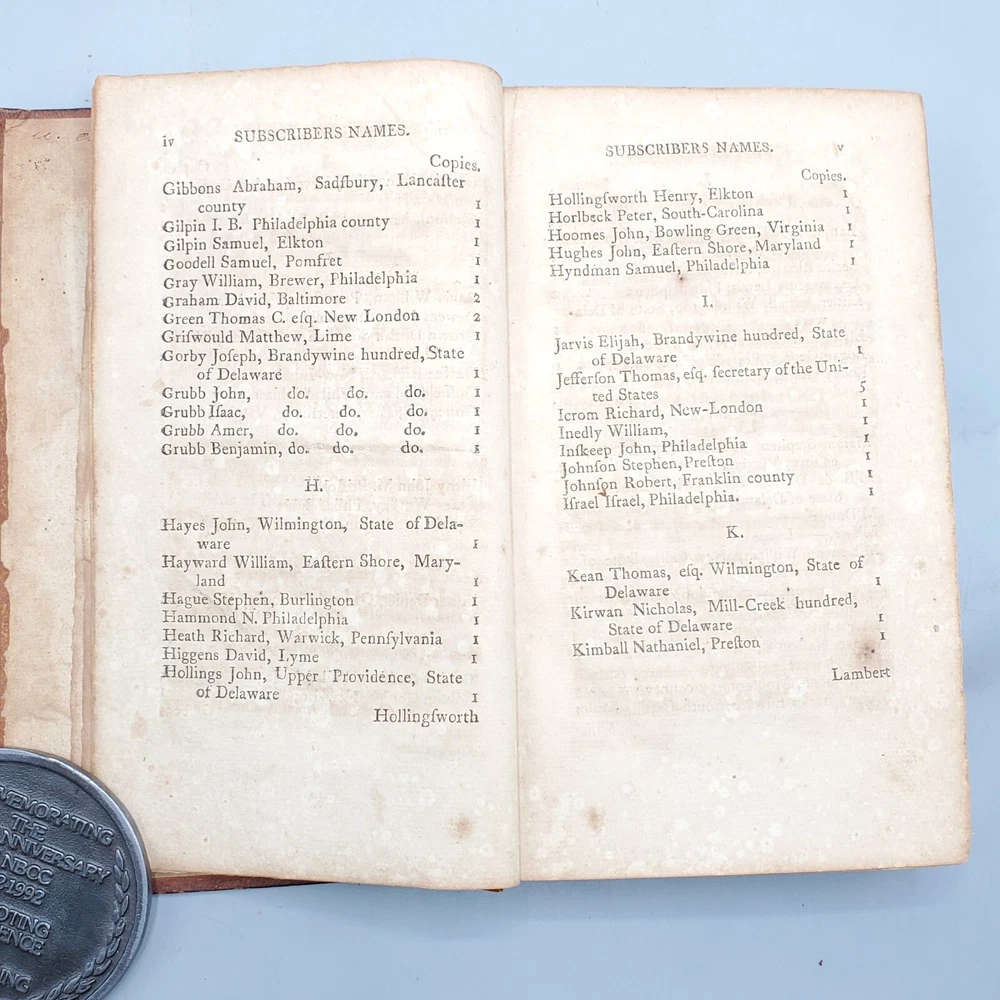 iv SUBSCRIBERS NAMES.
Copies.
Gibbons Abraham, Sadſbury, Lancaſter
county 1
Gilpin I. B. Philadelphia county 1
Gilpin Samuel, Elkton 1
Goodell Samuel, Pomfret 1
Gray William, Brewer, Philadelphia 1
Graham David, Baltimore 2
Green Thomas C. eſq. New London 2
Griſwould Matthew, Lime 1
Gorby Joſeph, Brandywine hundred, State
of Delaware 1
Grubb John, do. do. do. 1
Grubb Iſaac, do. do. do. 1
Grubb Amer, do. do. do. 1
Grubb Benjamin, do. do. do. 1
H.
Hayes John, Wilmington, State of Dela-
ware 1
Hayward William, Eaſtern Shore, Mary-
land 1
Hague Stephen, Burlington 1
Hammond N. Philadelphia 1
Heath Richard, Warwick, Pennſylvania 1
Higgens David, Lyme 1
Hollings John, Upper Providence, State
of Delaware 1
Hollingſworth
SUBSCRIBERS NAMES. v
Copies.
Hollingſworth Henry, Elkton 1
Horlbeck Peter, South-Carolina 1
Hoomes John, Bowling Green, Virginia 1
Hughes John, Eaſtern Shore, Maryland 1
Hyndman Samuel, Philadelphia 1
I.
Jarvis Elijah, Brandywine hundred, State
of Delaware 1
Jefferſon Thomas, eſq. ſecretary of the Uni-
ted States 5
Icrom Richard, New-London 1
Inedly William, 1
Inſkeep John, Philadelphia 1
Johnſon Stephen, Preſton 1
Johnſon Robert, Franklin county 1
Iſrael Iſrael, Philadelphia. 1
K.
Kean Thomas, eſq. Wilmington, State of
Delaware 1
Kirwan Nicholas, Mill-Creek hundred,
State of Delaware 1
Kimball Nathaniel, Preſton 1
Lambert
THE
NBCC
1992